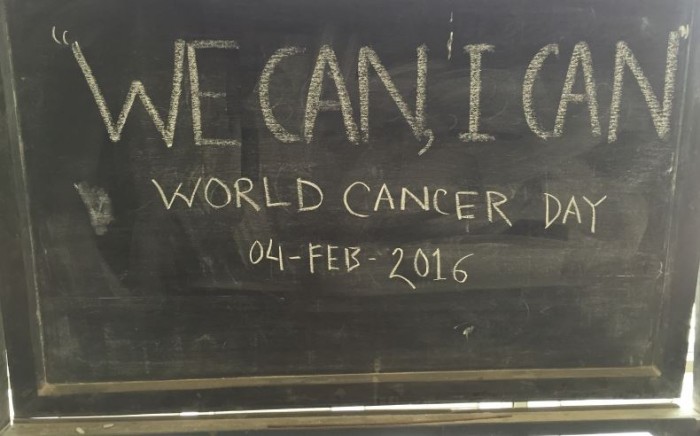 "WE CAN, I CAN"
WORLD CANCER DAY
04-FEB-2016